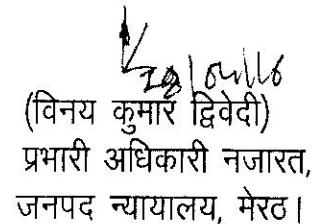 28/04/16
(विनय कुमार द्विवेदी)
प्रभारी अधिकारी नजारत,
जनपद न्यायालय, मेरठ।